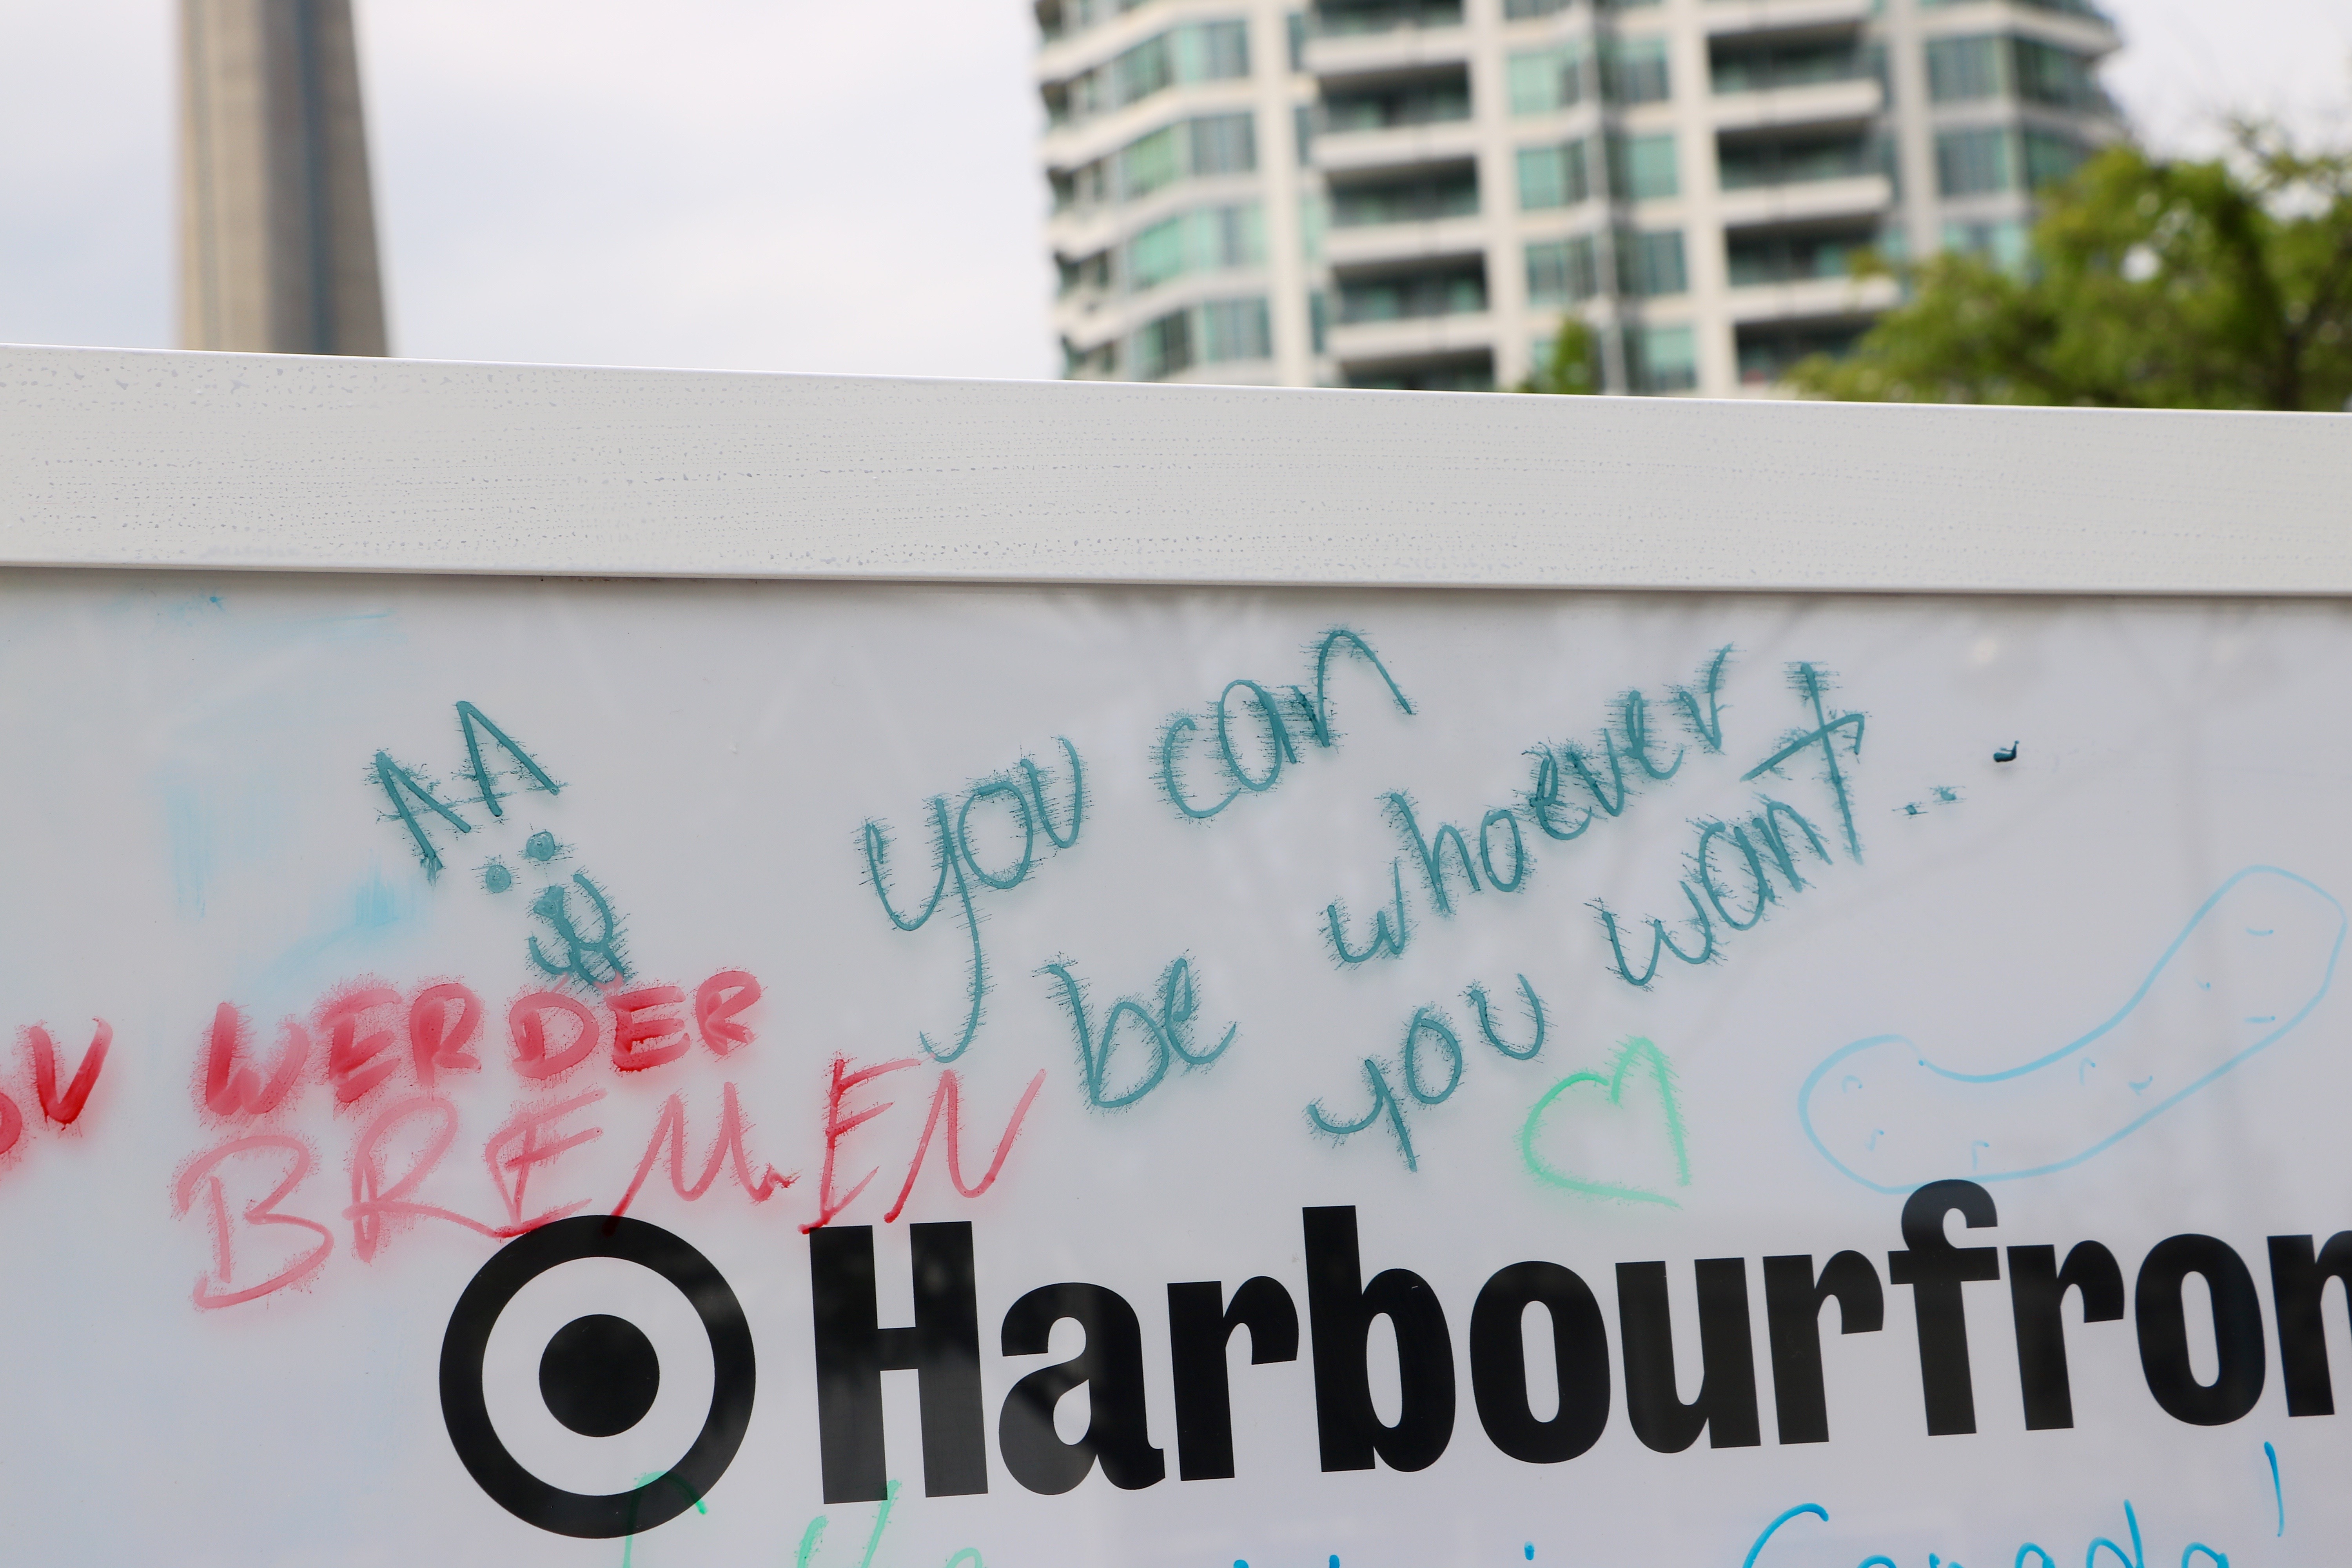 you can
be whoever
you want...
WERDER
BREMEN
Harbourfron
Canada!